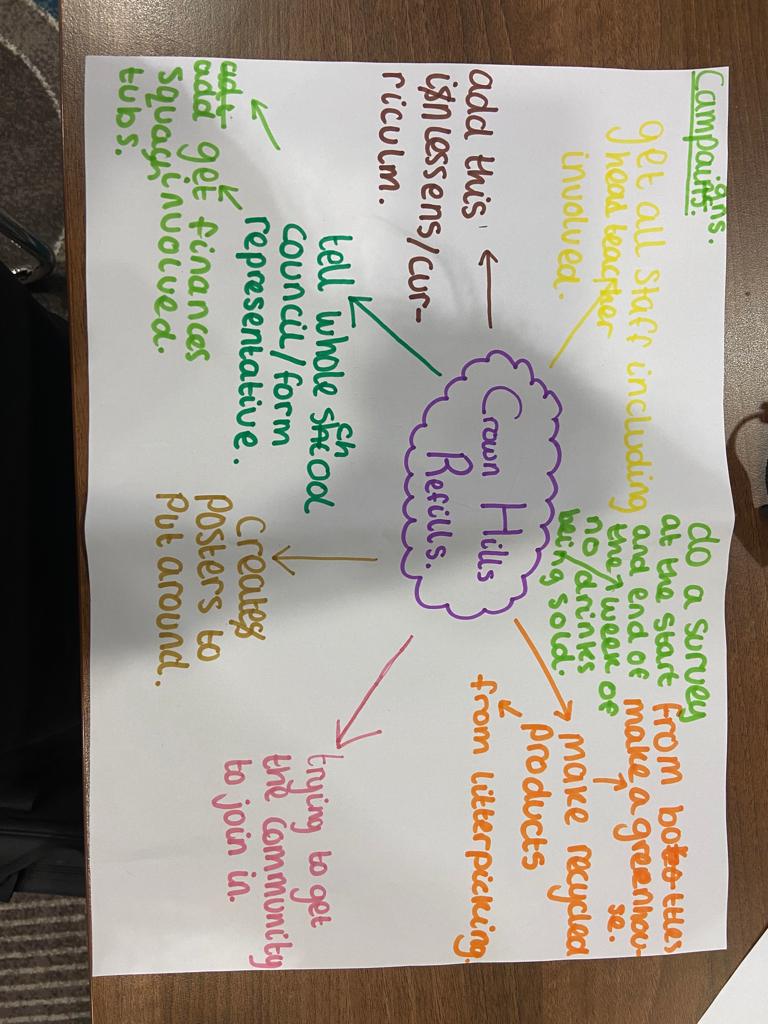 Campaigns.
get all staff including
head teacher
involved.
do a survey
at the start
and end of
the week of
no/drinks
being sold.
from bottles
make a greenhou-
se.
make recycled
products
from litterpicking.
add this
in lessens/cur-
riculm.
Crown Hills
Refills.
tell whole school
council/form
representative.
add
squash
tubs.
get finances
involved.
Create
posters to
put around.
trying to get
the community
to join in.